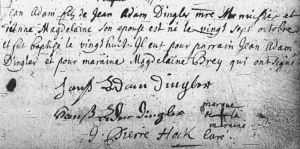 Jean Adam fils de Jean Adam Dingler mre Menuisier et
Anne Magdelaine son epouse est né le vingt sept octobre
et fut baptisé le vingt huit. Il eut pour parrain Jean Adam
Dingler et pour maraine Magdelaine Brey qui ont signé
Hanß Adam dingler
Hanß Adam dingler
marque
de la
maraine
J. Pierre Hock